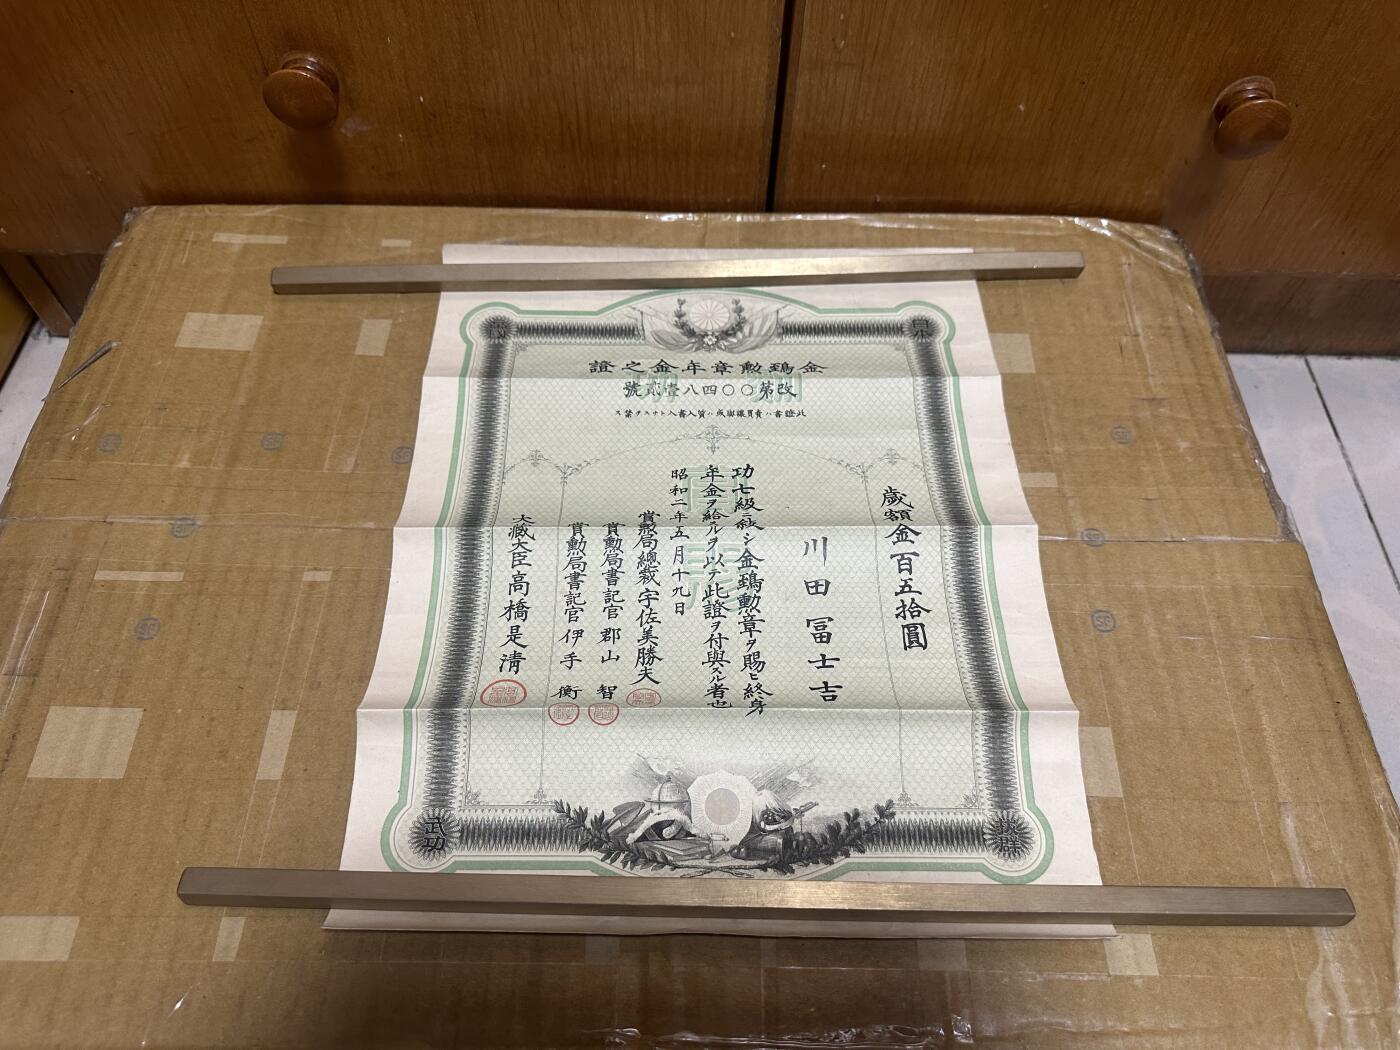 金鵄勲章年金之證
改第〇〇四八壹貳號
此證書ハ賣買讓與或ハ質入書入トナスヲ禁ス
歳額金百五拾圓
川田冨士吉
功七級ニ敍シ金鵄勲章ヲ賜ヒ終身
年金ヲ給ルヲ以テ此證ヲ付與スル者也
昭和二年五月十九日
賞勲局總裁宇佐美勝夫
賞勲局書記官郡山智
賞勲局書記官伊手衡
大藏大臣高橋是清
武功
抜群